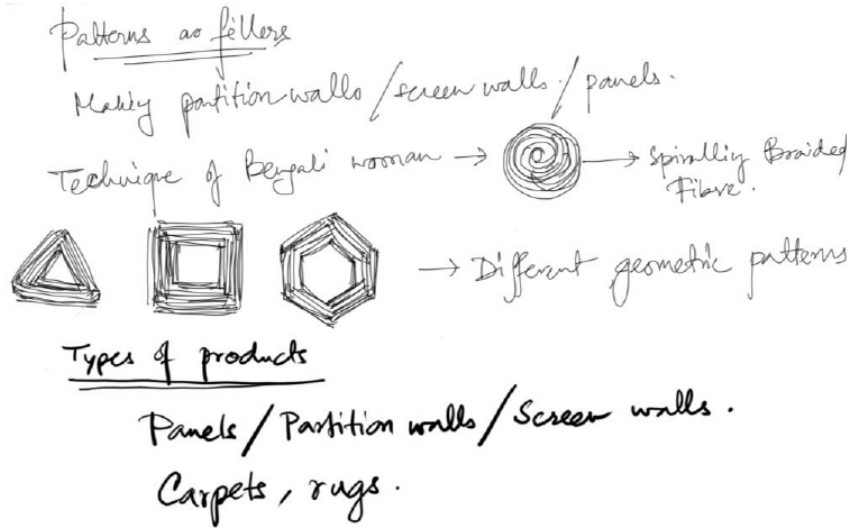 Patterns as fillers
Making partition walls / screen walls / panels.
Technique of Bengali woman → → Spirally Braided
Fibre.
→ Different geometric patterns
Types of products
Panels / Partition walls / Screen walls.
Carpets, rugs.